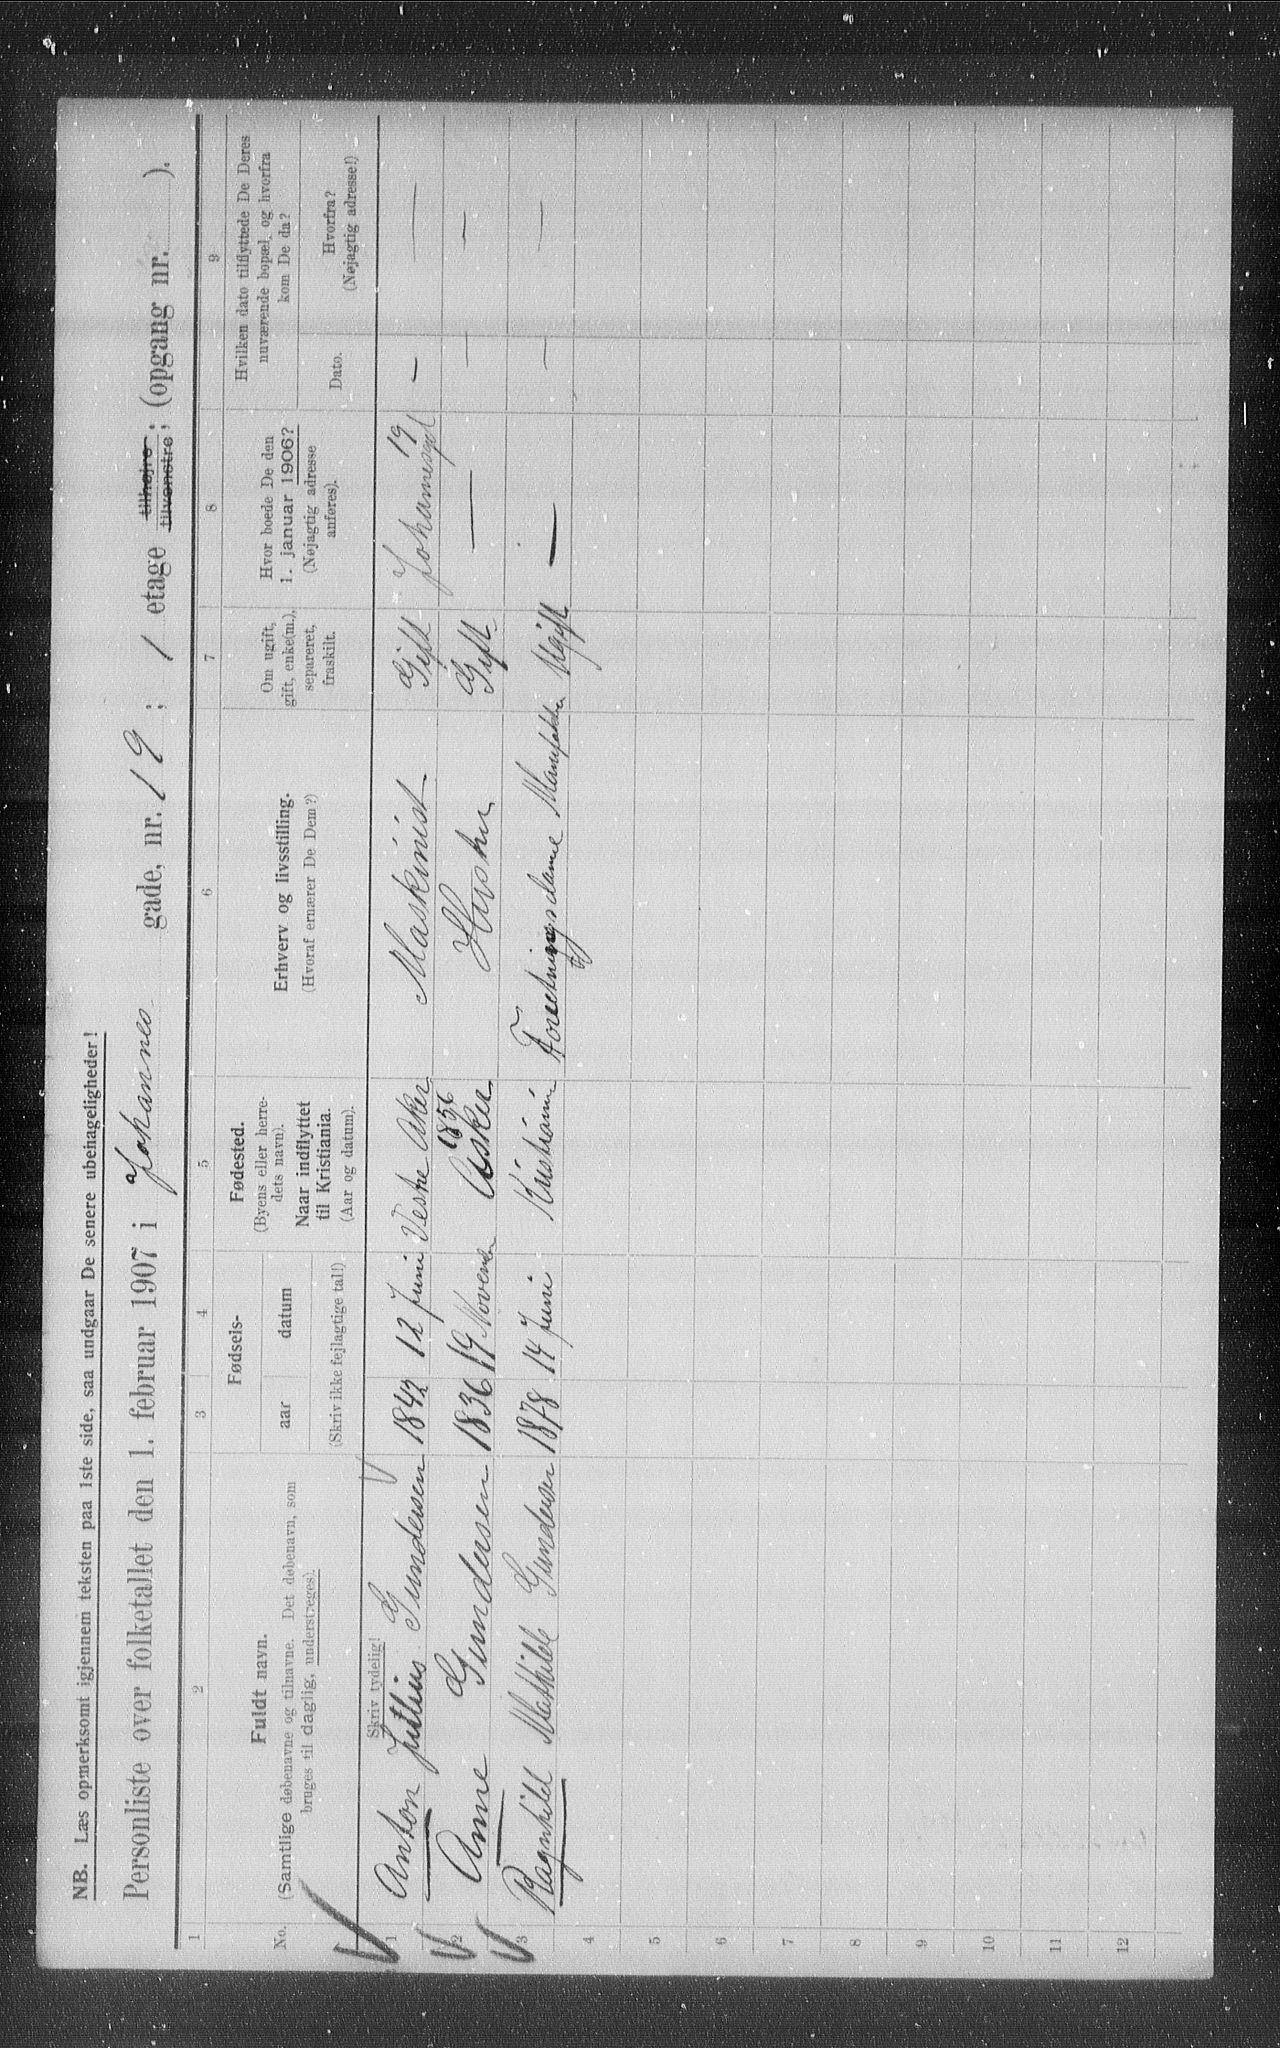 NB. Læs opmerksomt igjennem teksten paa 1ste side, saa undgaar De senere ubehageligheder!
Personliste over folketallet den 1. februar 1907 i Johannes gade, nr. 19 ; 1 etage tilhøjre, tilvenstre; (opgang nr. ).
1 2 3 4 5 6 7 8 9
No.
Fuldt navn.
(Samtlige døbenavne og tilnavne. Det døbenavn, som
bruges til daglig, understreges).
Skriv tydelig!
Fødsels-
aar datum
(Skriv ikke fejlagtige tal!)
Fødested.
(Byens eller herre-
dets navn).
Naar indflyttet
til Kristiania.
(Aar og datum).
Erhverv og livsstilling.
(Hvoraf ernærer De Dem?)
Om ugift,
gift, enke(m.),
separeret,
fraskilt.
Hvor boede De den
1. januar 1906?
(Nøjagtig adresse
anføres).
Hvilken dato tilflyttede De Deres
nuværende bopæl, og hvorfra
kom De da?
Dato.
Hvorfra?
(Nøjagtig adresse!)
1 Anton Jullius Gundersen 1842 12 Juni Vestre Aker Maskinist Gift Johannesgt 19 — —
2 Anne Gundersen 1836 19 November 1856 Asker Hustru Gift — — —
3 Ragnhild Mathilde Gundersen 1878 14 Juni Kristiania Forretningsdame Ugift — — —
4
5
6
7
8
9
10
11
12